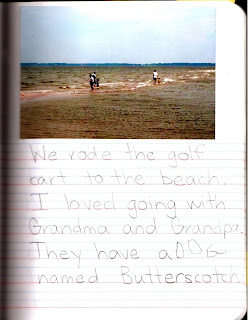 We rode the golf
cart to the beach.
I loved going with
Grandma and Grandpa.
They have a DOG
named Butterscotch